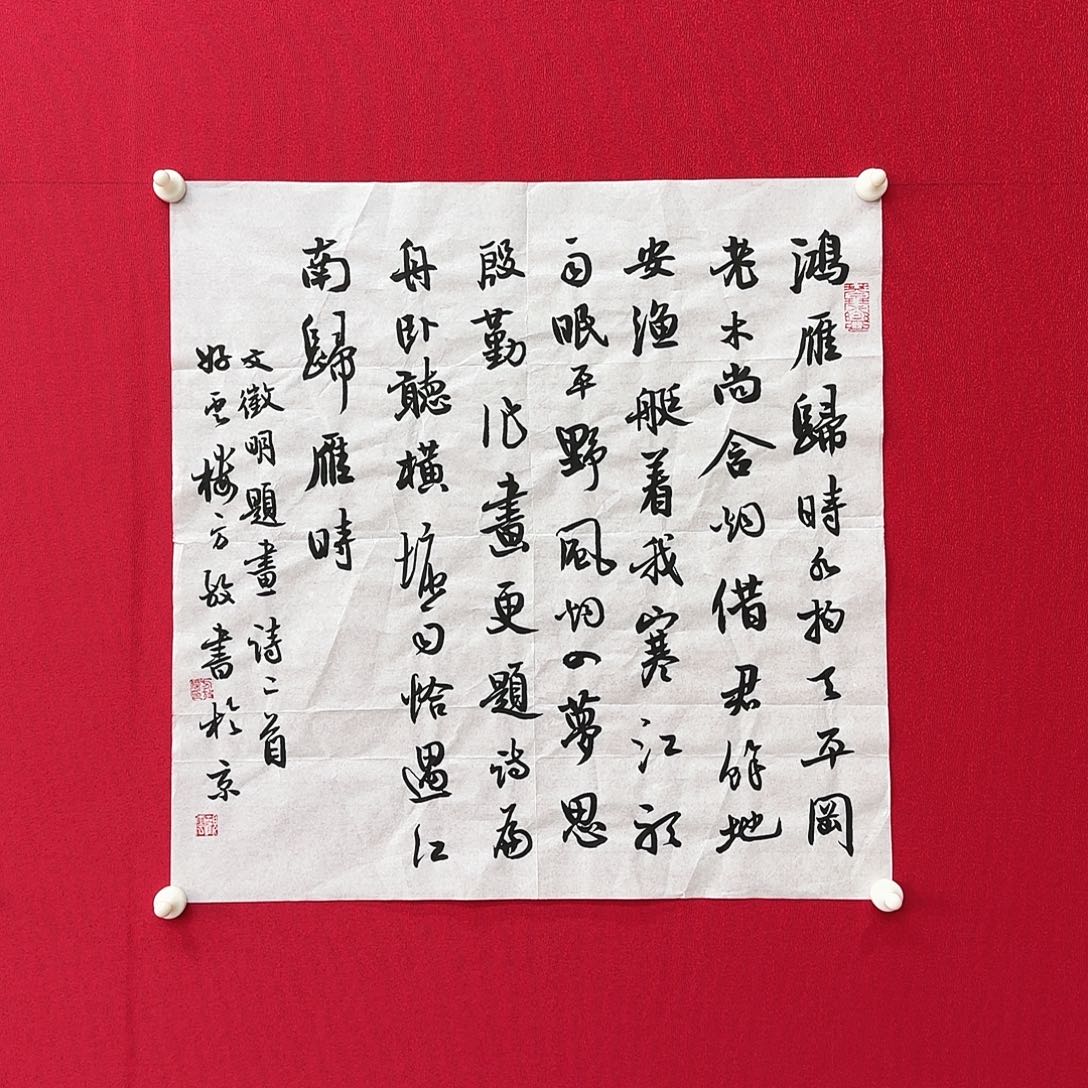 鴻雁歸時水拍天平岡
老木尚含烟借君餘地
安漁艇着我寒江聽
雨眠平野風烟夢思
殷勤作畫更題詩扁
舟卧聽橫塘雨恰遇江
南歸雁時
文徵明題畫詩二首
好雲樓方書於京